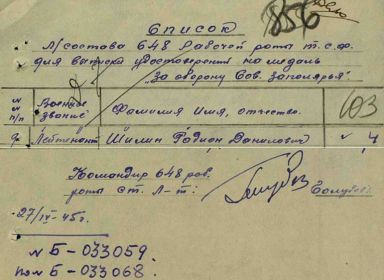 856
Список
Л/состава 648 Рабочей роты т.с.ф.
для выписки удостоверений на медаль
„за оборону Сов. заполярья".
№ № п/п Военное звание Фамилия Имя, отчество. 103
Лейтенант Шилин Родион Данилович ✓ 4
Командир 648 раб.
роты ст. л-т: Голубев
27/IV-45г.
№ Б-033059.
по№ Б-033068.